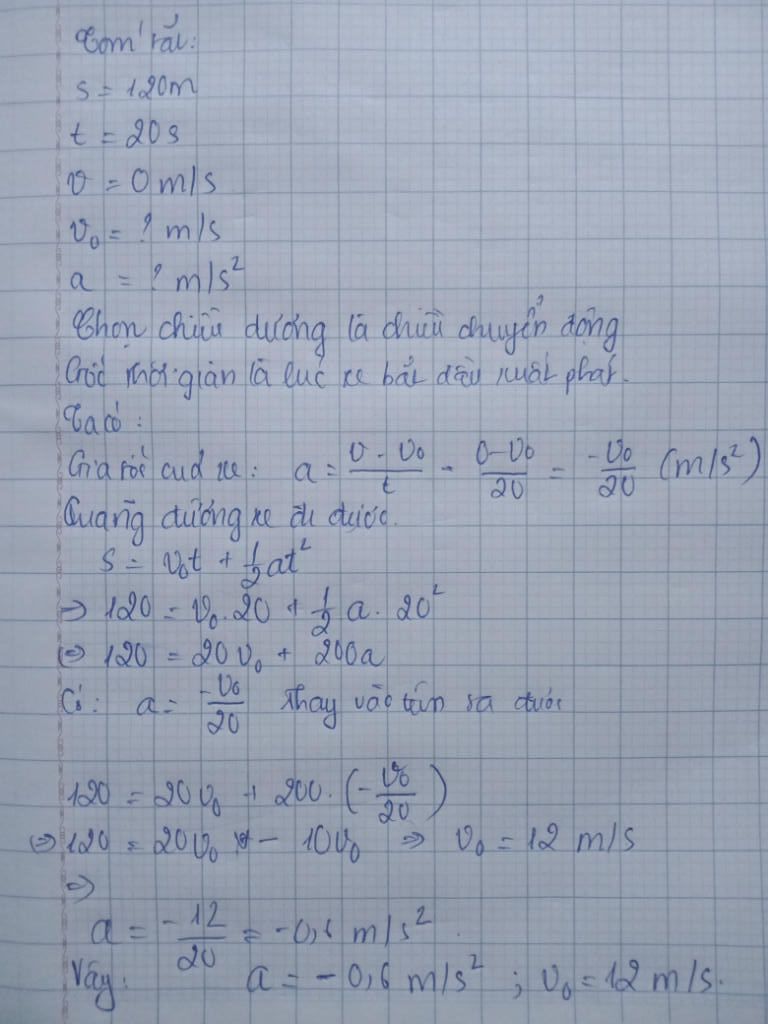 Tóm tắt:
s = 120m
t = 20s
v = 0 m/s
v₀ = ? m/s
a = ? m/s²
Chọn chiều dương là chiều chuyển động
Gốc thời gian là lúc xe bắt đầu xuất phát.
Ta có:
Gia tốc của xe: a = \frac{v - v₀}{t} = \frac{0 - v₀}{20} = \frac{-v₀}{20} (m/s²)
Quãng đường xe đi được.
s = v₀t + \frac{1}{2}at²
=> 120 = v₀.20 + \frac{1}{2} a. 20²
<=> 120 = 20v₀ + 200a
Có: a = \frac{-v₀}{20} thay vào trên ta được
120 = 20v₀ + 200.(-\frac{v₀}{20})
=> 120 = 20v₀ - 10v₀ => v₀ = 12 m/s
=>
a = -\frac{12}{20} = -0,6 m/s².
Vậy: a = -0,6 m/s² ; v₀ = 12 m/s.